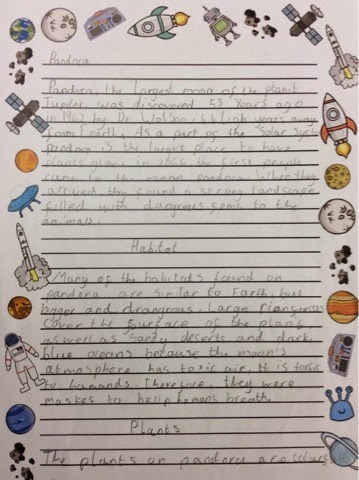 Pandora
Pandora, the largest moon of the planit
Jupiter, was discovered 53 years ago
in 1962 by Dr Watson, 6 ligh years away
from Earth. As a part of the Solar System
pandora is the largest place to have
plants grow. in 2066 the first people
came to the moon pandora. When they
arrived, they found a strang landscape
filled with dangrous to the
animals.
Habitat
Many of the habitats found on
pandora are similar to Earth, but
bigger and drangrous. Large
cover the surface of the planit
as well as sandy deserts and dark
blue oceans because the moon's
atmosphere has toxic air. It is toxic
to humands. Therefore, they were
maskes to help humans breath.
Plants
The plants on pandora are